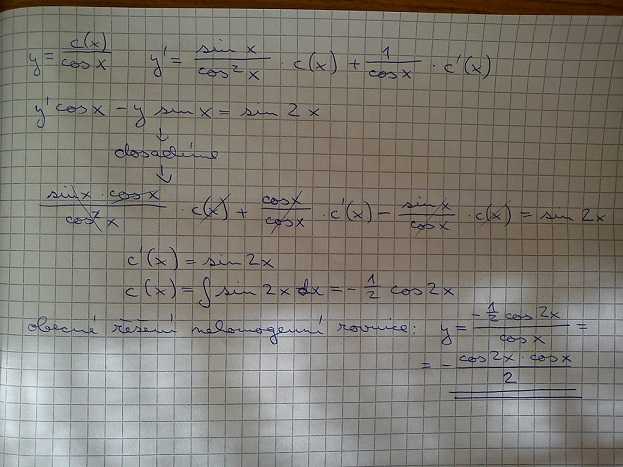 y = c(x)/cos x   y' = sin x/cos² x · c(x) + 1/cos x · c'(x)
y' cos x − y sin x = sin 2x
↓
dosadíme
↓
sin x · cos x/cos² x · c(x) + cos x/cos x · c'(x) − sin x/cos x · c(x) = sin 2x
c'(x) = sin 2x
c(x) = ∫ sin 2x dx = − 1/2 cos 2x
obecné řešení nehomogenní rovnice: y = − 1/2 cos 2x/cos x =
= − cos 2x · cos x/2